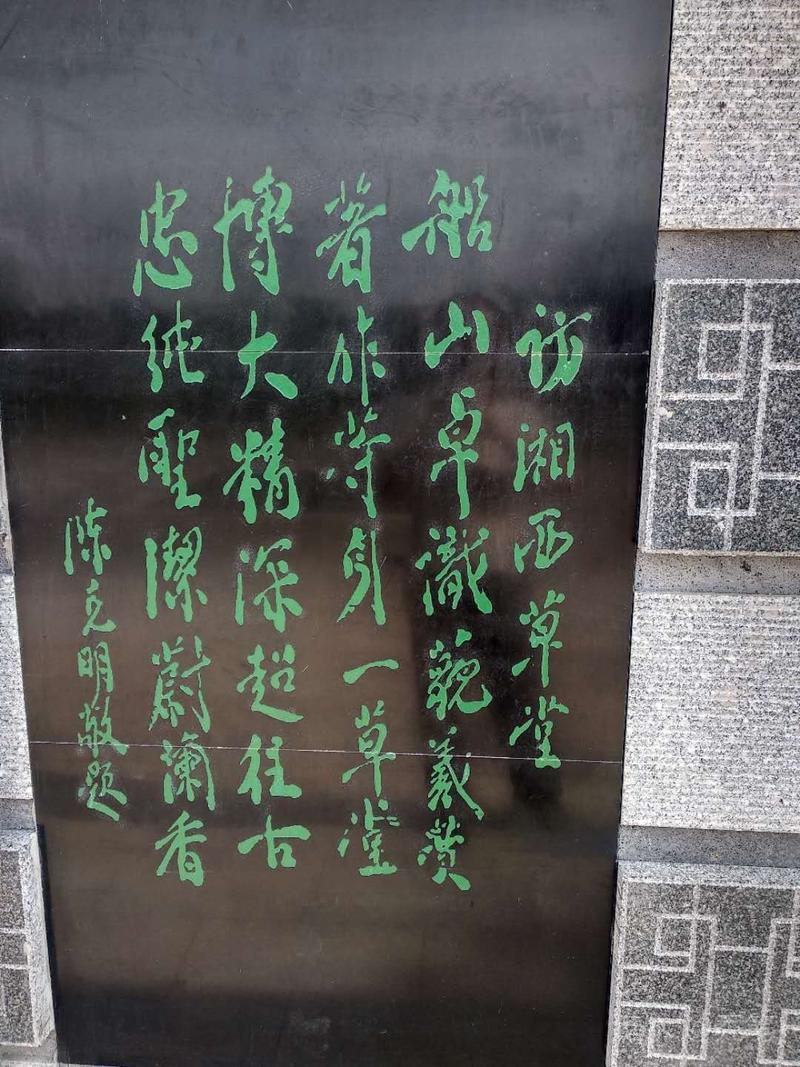 訪湘西草堂
船山卓識藐羲黄
著作等身一草堂
博大精深超往古
忠純聖潔蔚蘭香
陈克明敬题